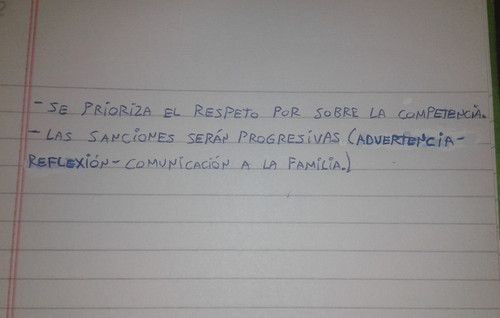 - SE PRIORIZA EL RESPETO POR SOBRE LA COMPETENCIA.
- LAS SANCIONES SERÁN PROGRESIVAS (ADVERTENCIA-
REFLEXIÓN- COMUNICACIÓN A LA FAMILIA.)